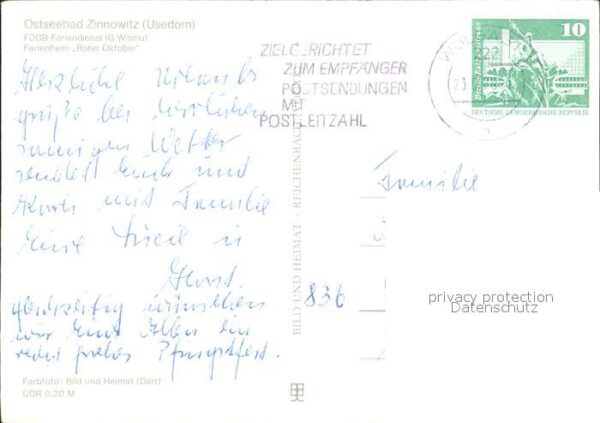 Ostseebad Zinnowitz (Usedom)
FDGB-Feriendienst IG Wismut
Ferienheim „Roter Oktober"
Herzliche Urlaubs
grüße bei herrlichen
sonnigen Wetter
sendet Euch und
mit Familie
Eure
Horst.
gleichzeitig wünschen
wir Euch Allen ein
recht frohes Pfingstfest.
Farbfoto: Bild und Heimat (Darr)
DDR 0,20 M
BILD UND HEIMAT · REICHENBACH
ZIELGERICHTET
ZUM EMPFÄNGER
POSTSENDUNGEN
MIT
POSTLEITZAHL
WOLGAST
222
10
DEUTSCHE DEMOKRATISCHE REPUBLIK
Familie
836
privacy protection
Datenschutz